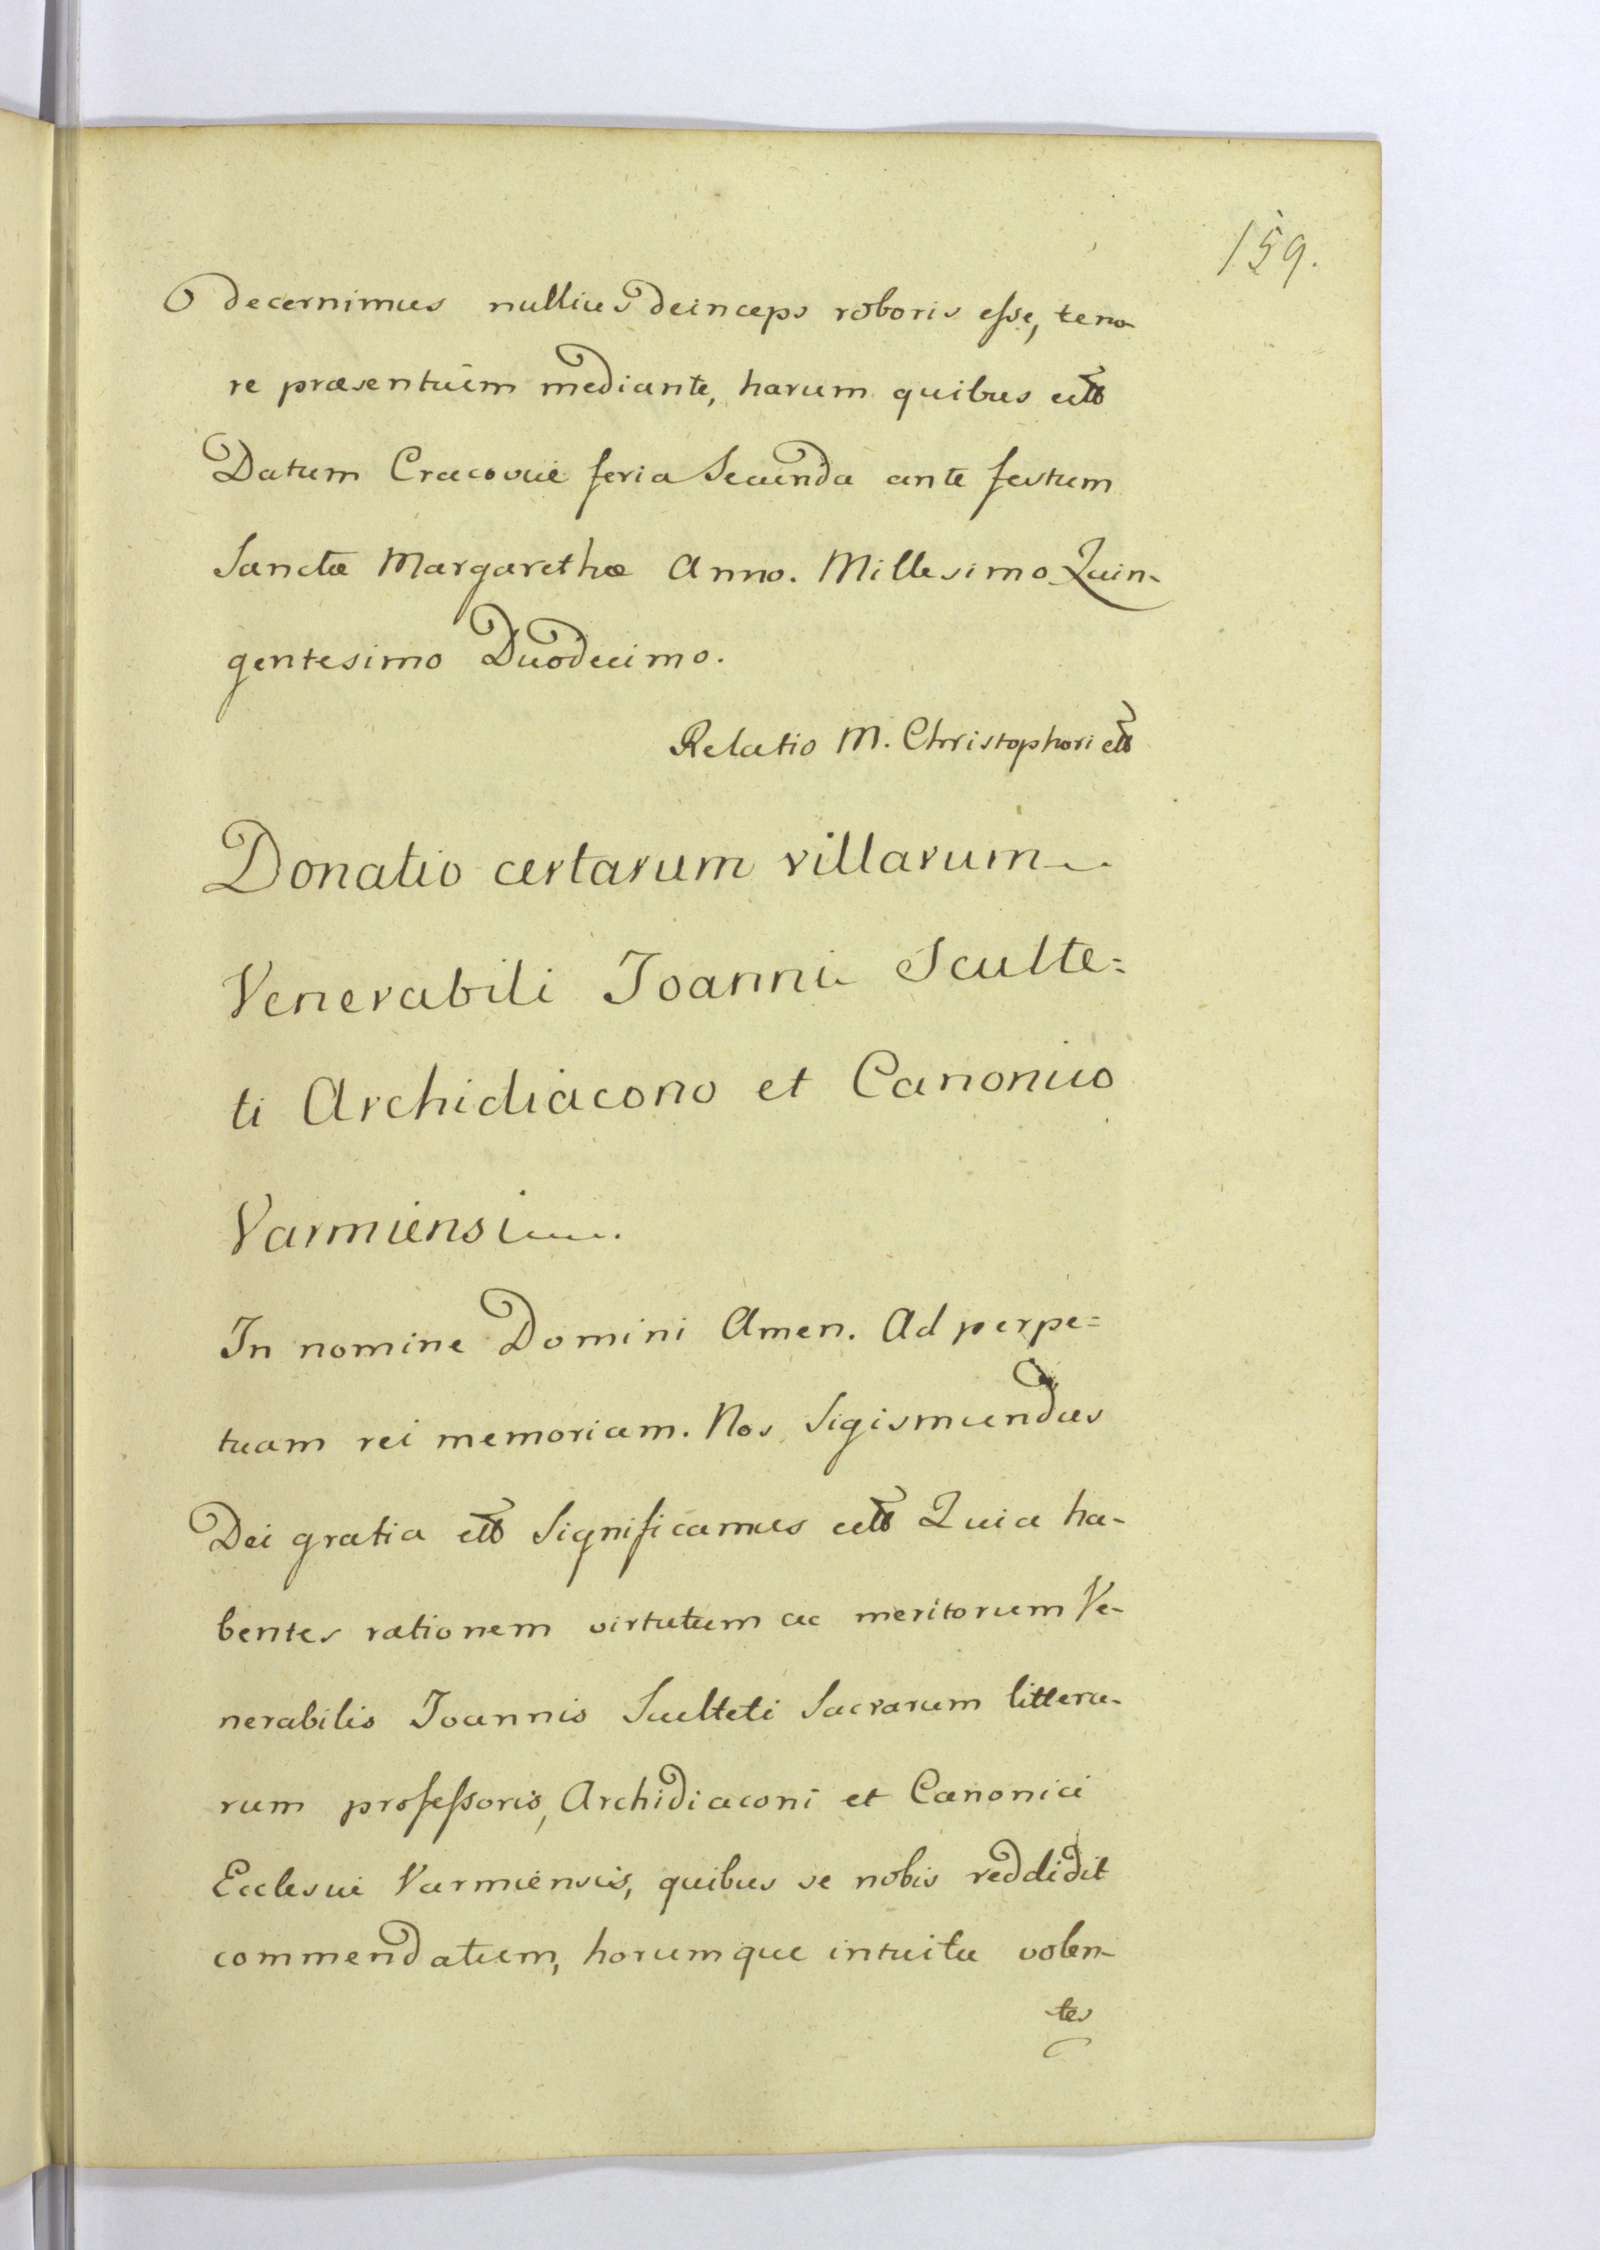 159.
decernimus nullius deinceps roboris esse, teno-
re præsentium mediante, harum quibus etc
Datum Cracoviæ feria Secunda ante festum
Sanctæ Margarethæ Anno. Millesimo Quin-
gentesimo Duodecimo.
Relatio M. Christophori etc
Donatio certarum villarum
Venerabili Joanni Sculte=
ti Archidiacono et Canonico
Varmiensi.
In nomine Domini Amen. Ad perpe=
tuam rei memoriam. Nos Sigismundus
Dei gratia etc Significamus etc Quia ha-
bentes rationem virtutum ac meritorum Ve-
nerabilis Joannis Sculteti Sacrarum littera-
rum professoris, Archidiaconi et Canonici
Ecclesiæ Varmiensis, quibus se nobis reddidit
commendatum, horumque intuitu volen-
tes